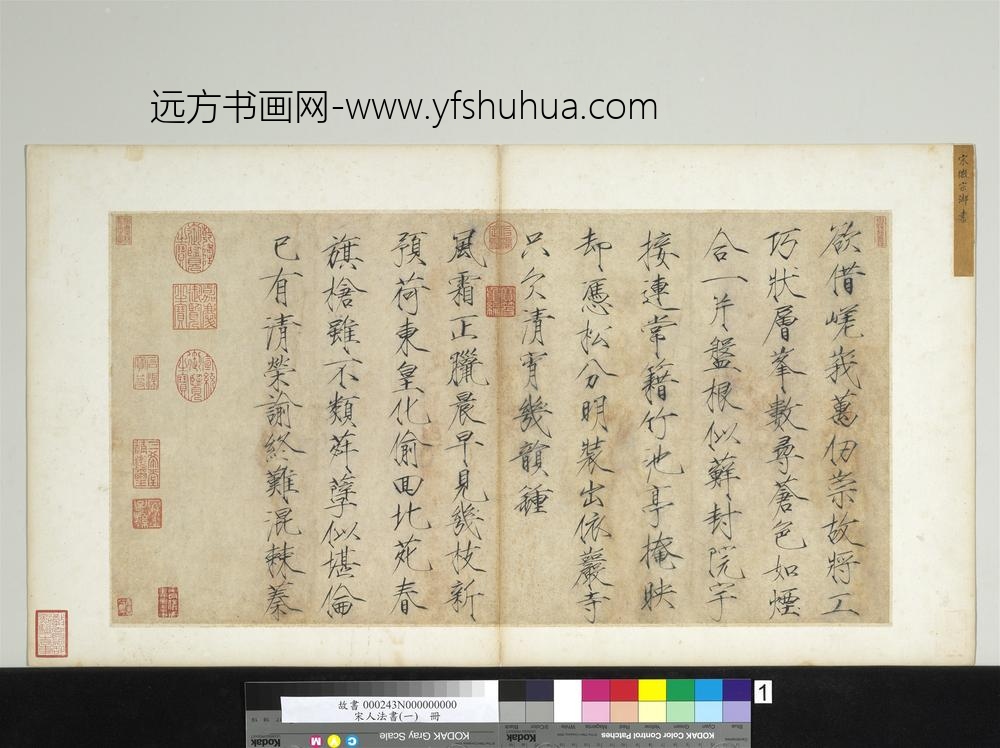 远方书画网-www.yfshuhua.com
宋徽宗御書
欲借嵯峩萬仞崇故將工
巧狀層峯數尋蒼色如煙
合一片盤根似蘚封院宇
接連常籍竹池亭掩映
却憑松分明裝出依巖寺
只欠清宵幾韻鍾
風霜正臘晨早見幾枝新
預荷東皇化偷回北苑春
旗槍雖不類荈孽似堪倫
已有清榮諭終難混棘蓁
故書 000243N000000000
宋人法書(一) 冊
1
Kodak
KODAK Gray Scale
M Y C
KODAK Color Control Patches
Kodak